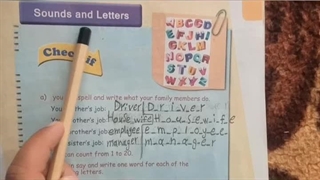 Sounds and Letters
ABCCD
EFJNI
GKLM
HOPQR
STUV
WXYZ
Check it
a) you spell and write what your family members do.
You ther's job: Driver D_r_i_v_e_r
You other's job: House wife H_o_u_s_e_w_i_f_e
rother's job: employee e_m_p_l_o_y_e_e
ster's job: manager m_a_n_a_g_e_r
an count from 1 to 20.
n say and write one word for each of the
ng letters.